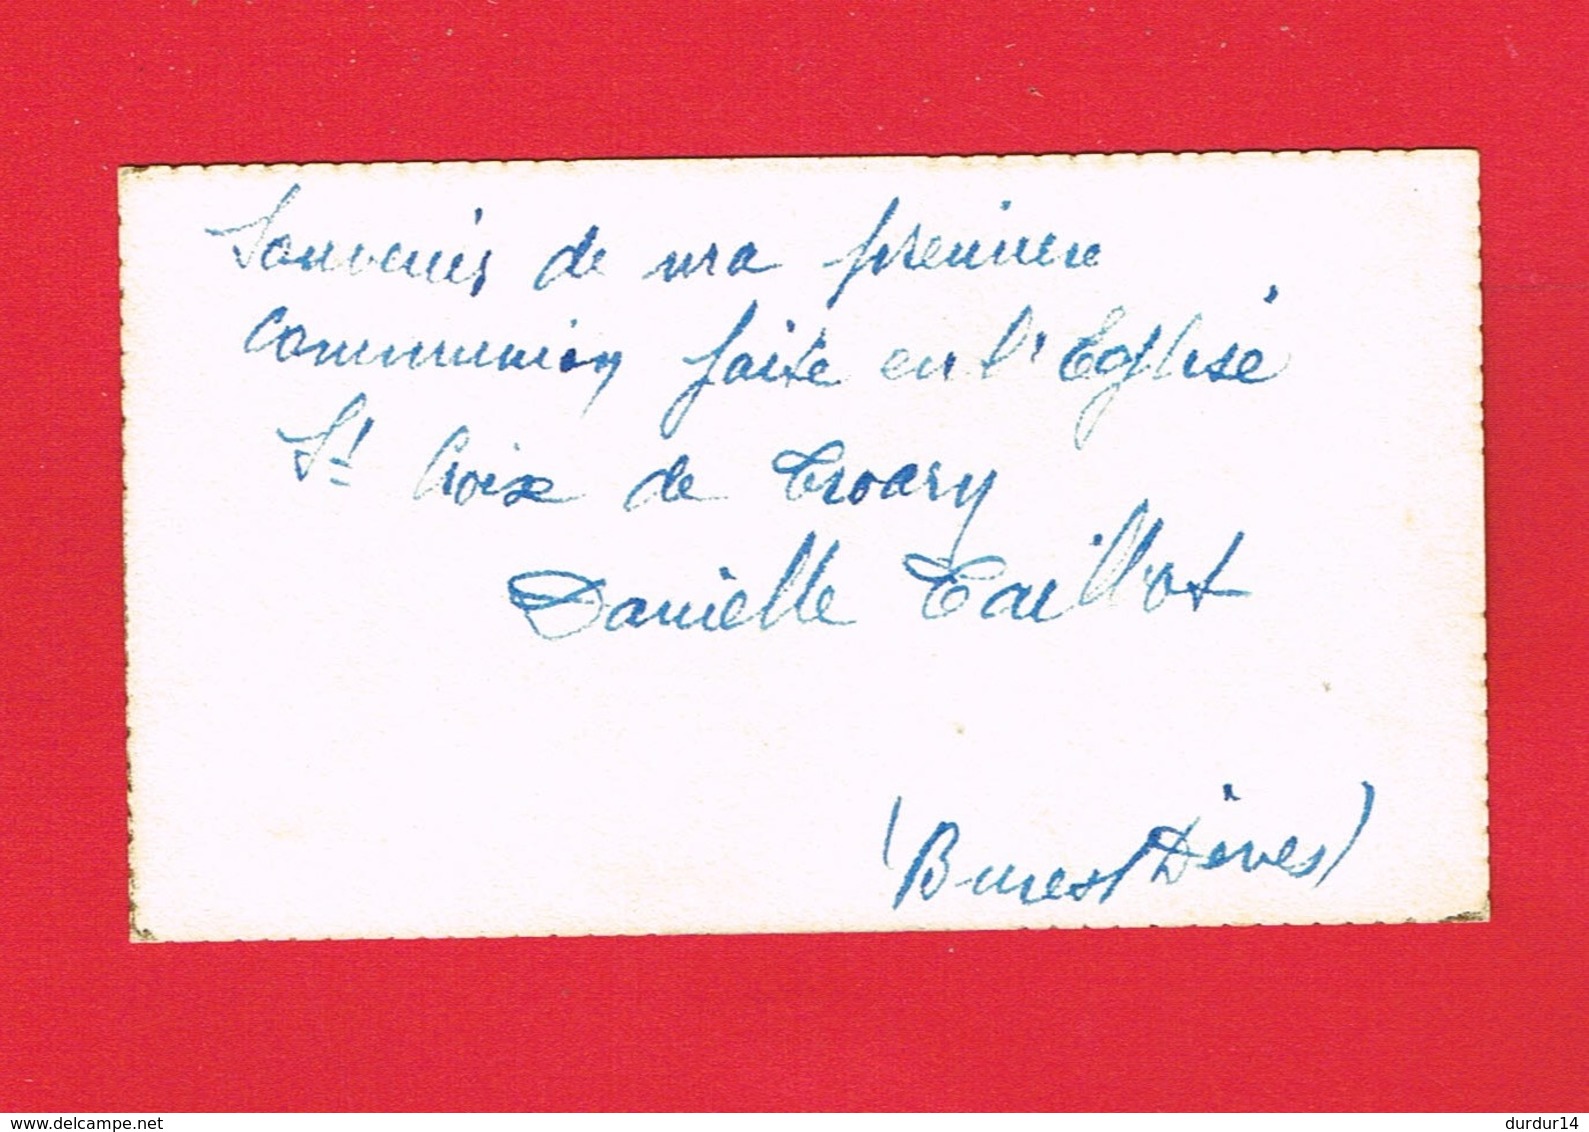 Souvenir de ma première
Communion faite en l'Eglise
St Croix de Troarn
Danielle Taillot
(Bures s/ Dives)
delcampe.net
durdur14